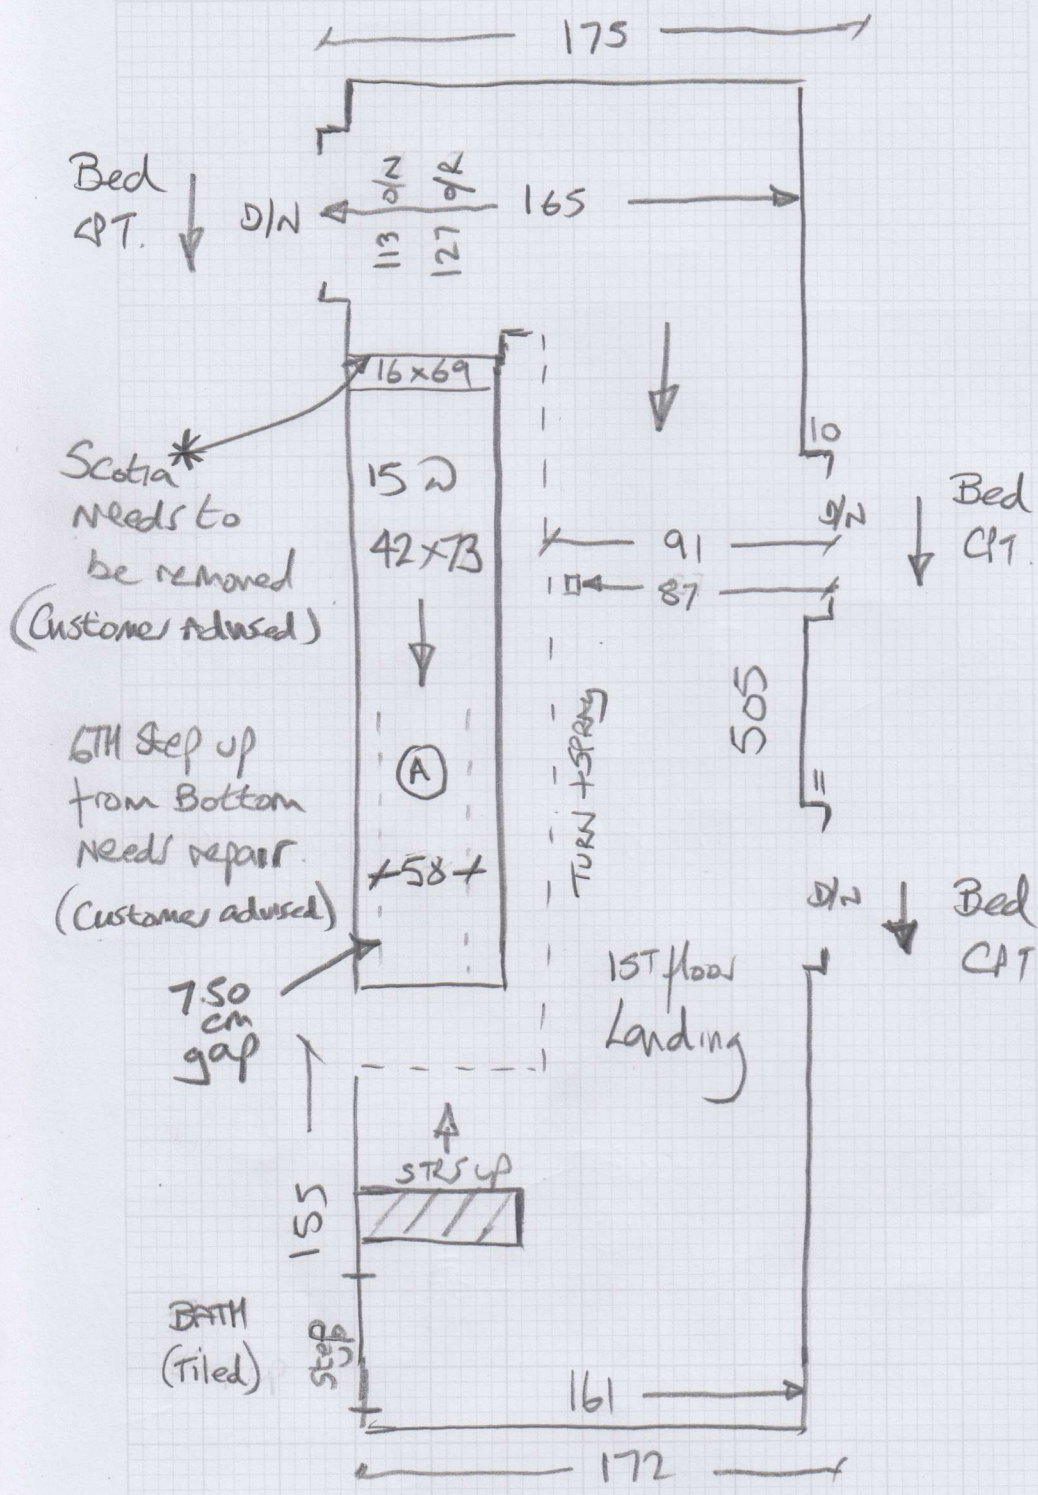 175
Bed
CPT.
D/N
113 O/N
127 O/R
165
16x69
Scotia *
needs to
be removed
(Customer Advised)
15
42x73
10
D/N
Bed
CPT.
91
87
505
6TH Step up
from Bottom
Needs repair.
(Customer advised)
A
58
TURN + SPRAY
11
D/N
Bed
CPT
7.50
cm
gap
1ST floor
Landing
STRS UP
155
BATH
(Tiled)
Step
up
161
172